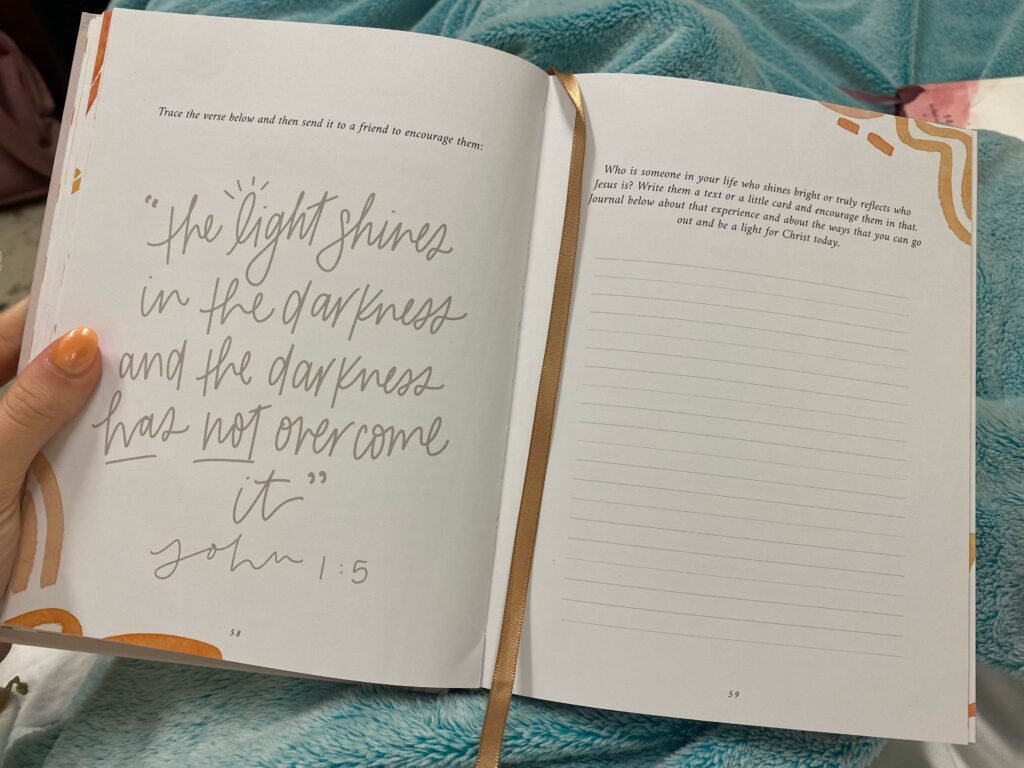 Trace the verse below and then send it to a friend to encourage them:
“the light shines
in the darkness
and the darkness
has not overcome
it”
John 1:5
58
Who is someone in your life who shines bright or truly reflects who
Jesus is? Write them a text or a little card and encourage them in that.
Journal below about that experience and about the ways that you can go
out and be a light for Christ today.
59